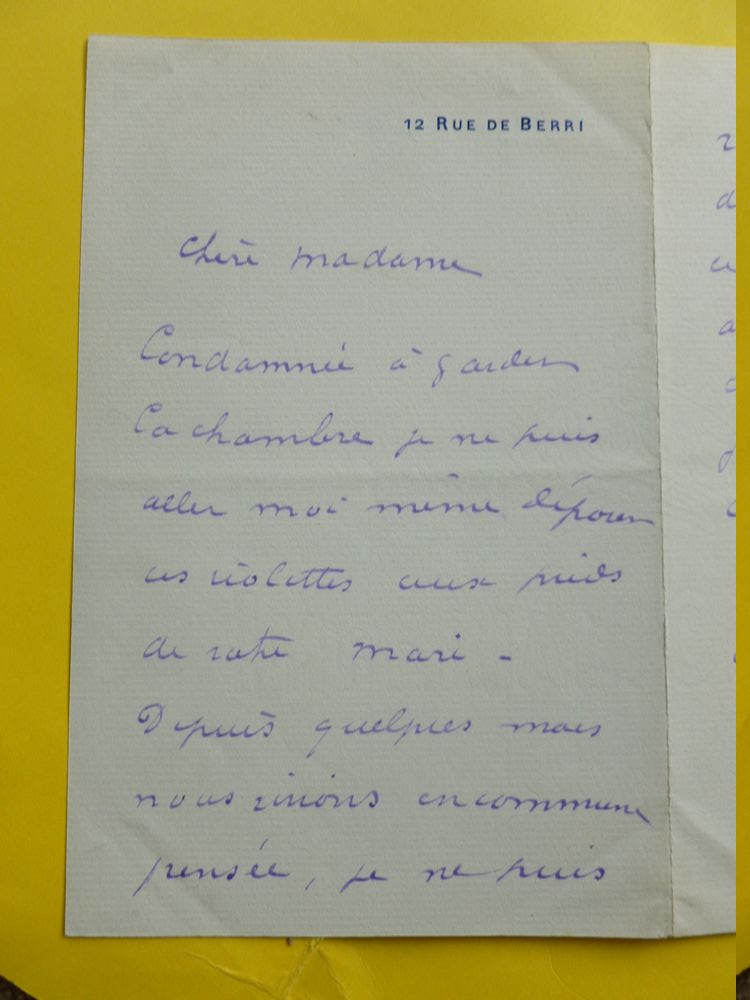 12 RUE DE BERRI
Chère madame
Condamnée à garder
la chambre je ne puis
aller moi même déposer
ces violettes aux pieds
de votre mari -
Depuis quelques mois
nous vivions en commune
pensée, je ne puis